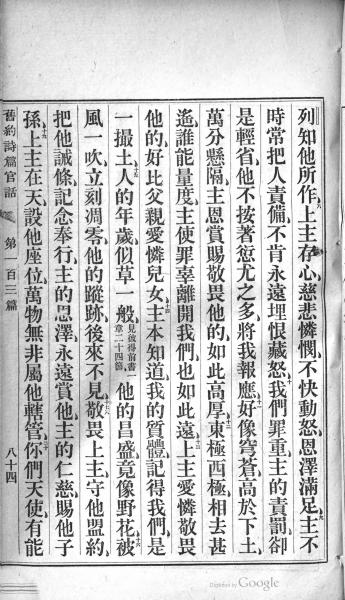 列知他所作、八上主存心慈悲憐憫、不快動怒恩澤滿足、九主不
時常把人責備、不肯永遠埋恨藏怒、十我們罪重、主的責罰卻
是輕省、他不按著愆尤之多、將我報應、十一好像穹蒼高於下土、
萬分懸隔、主恩賞賜敬畏他的、如此高厚、十二東極西極相去甚
遙、誰能量度、主使罪辜離開我們、也如此遠、十三上主愛憐敬畏
他的、好比父親愛憐兒女、十四主本知道我的質體、記得我們是
一撮土、十五人的年歲似草一般、見彼得前書一章二十四節他的昌盛竟像野花、十六被
風一吹、立刻凋零、他的蹤跡、後來不見、十七敬畏上主、守他盟約、十八
把他誡條記念奉行、主的恩澤永遠賞他、主的仁慈賜他子
孫、十九上主在天、設他座位、萬物無非屬他轄管、二十你們天使有能
舊約詩篇官話 第一百三篇 八十四
Digitized by Google